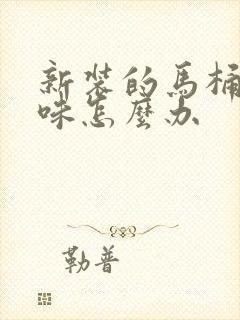 新装的馬桶
味怎麼办
勒普